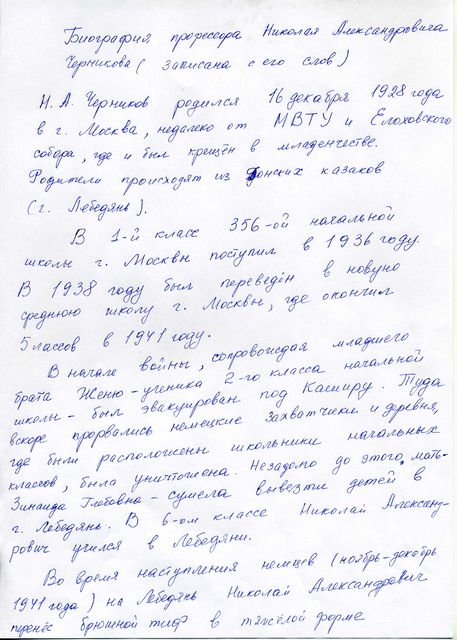 Биография профессора Николая Александровича
Черникова ( записана с его слов )
Н. А. Черников родился 16 декабря 1928 года
в г. Москва, недалеко от МВТУ и Елоховского
собора, где и был крещён в младенчестве.
Родители происходят из Донских казаков
( г. Лебедянь ).
В 1-й класс 356-ой начальной
школы г. Москвы поступил в 1936 году.
В 1938 году был переведён в новую
среднюю школу г. Москвы, где окончил
5 лассов в 1941 году.
В начале войны, сопровождая младшего
брата Женю - ученика 2-го класса начальной
школы - был эвакуирован под Каширу. Туда
вскоре прорвались немецкие захватчики и деревня,
где были расположены школьники начальных
классов, была уничтожена. Незадолго до этого мать -
Зинаида Глебовна - сумела вывезти детей в
г. Лебедянь. В 6-ом классе Николай Александ-
рович учился в Лебедяни.
Во время наступления немцев ( ноябрь-декабрь
1941 года ) на Лебедянь Николай Александрович
перенёс брюшной тиф в тяжёлой форме